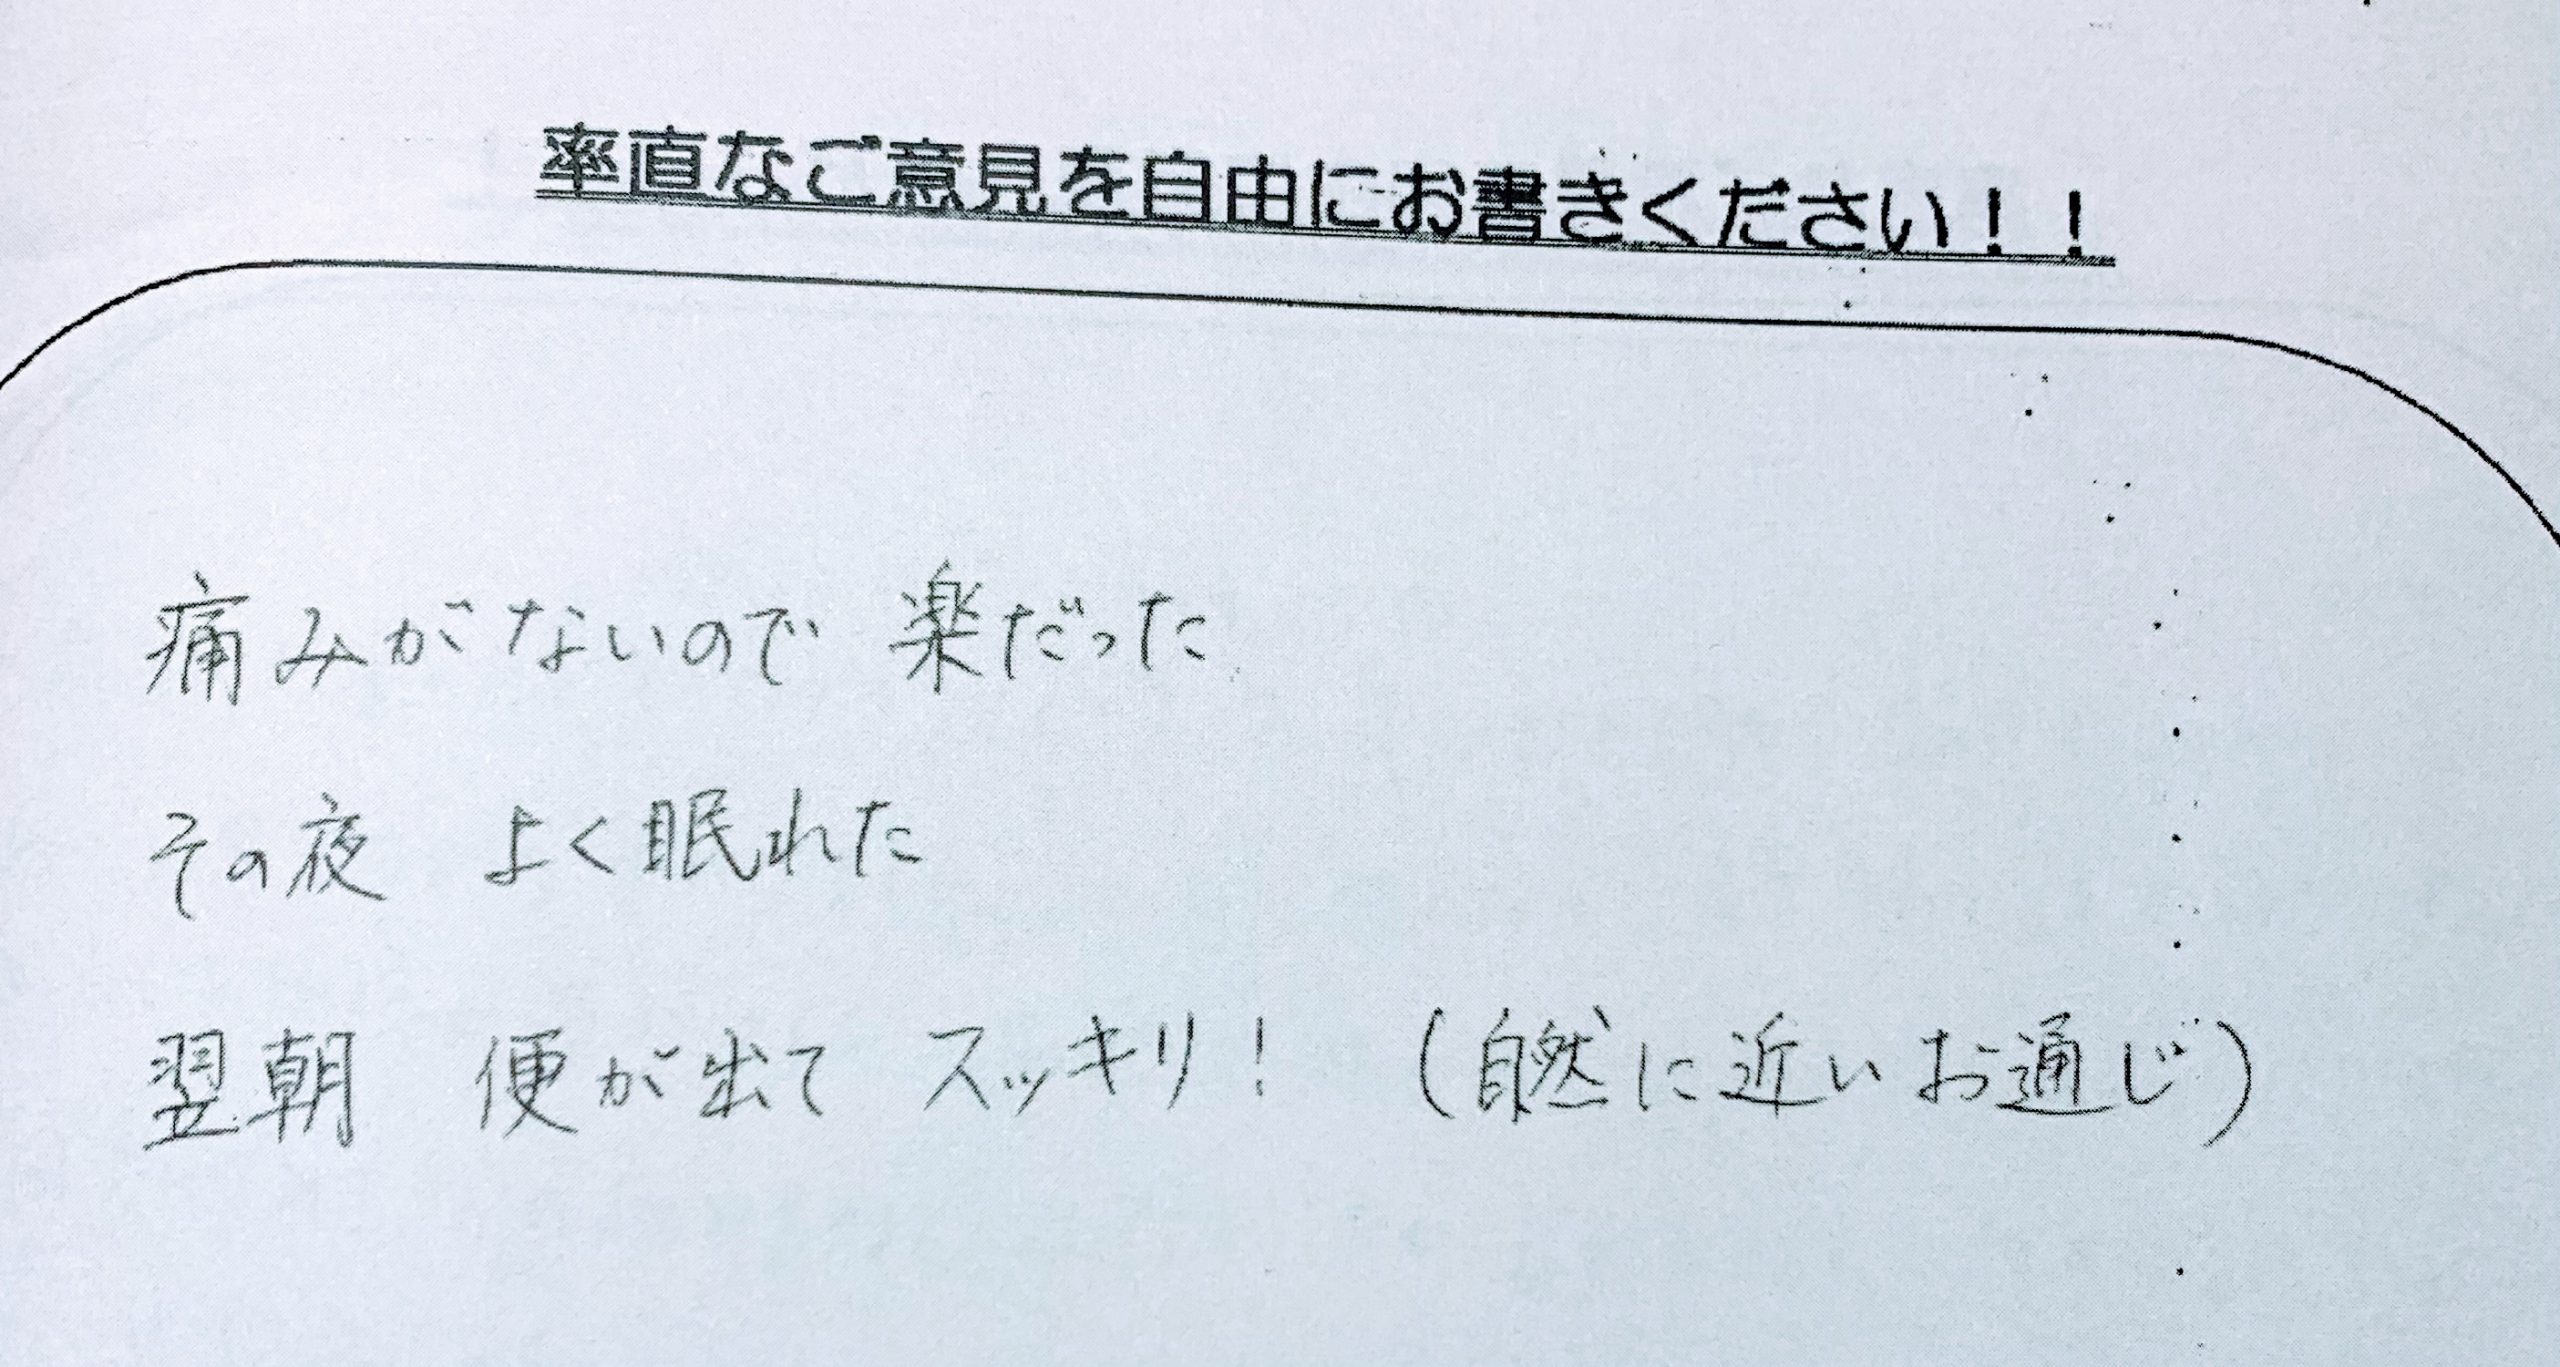 率直なご意見を自由にお書きください！！
痛みがないので 楽だった
その夜 よく眠れた
翌朝 便が出て スッキリ！ （自然に近いお通じ）